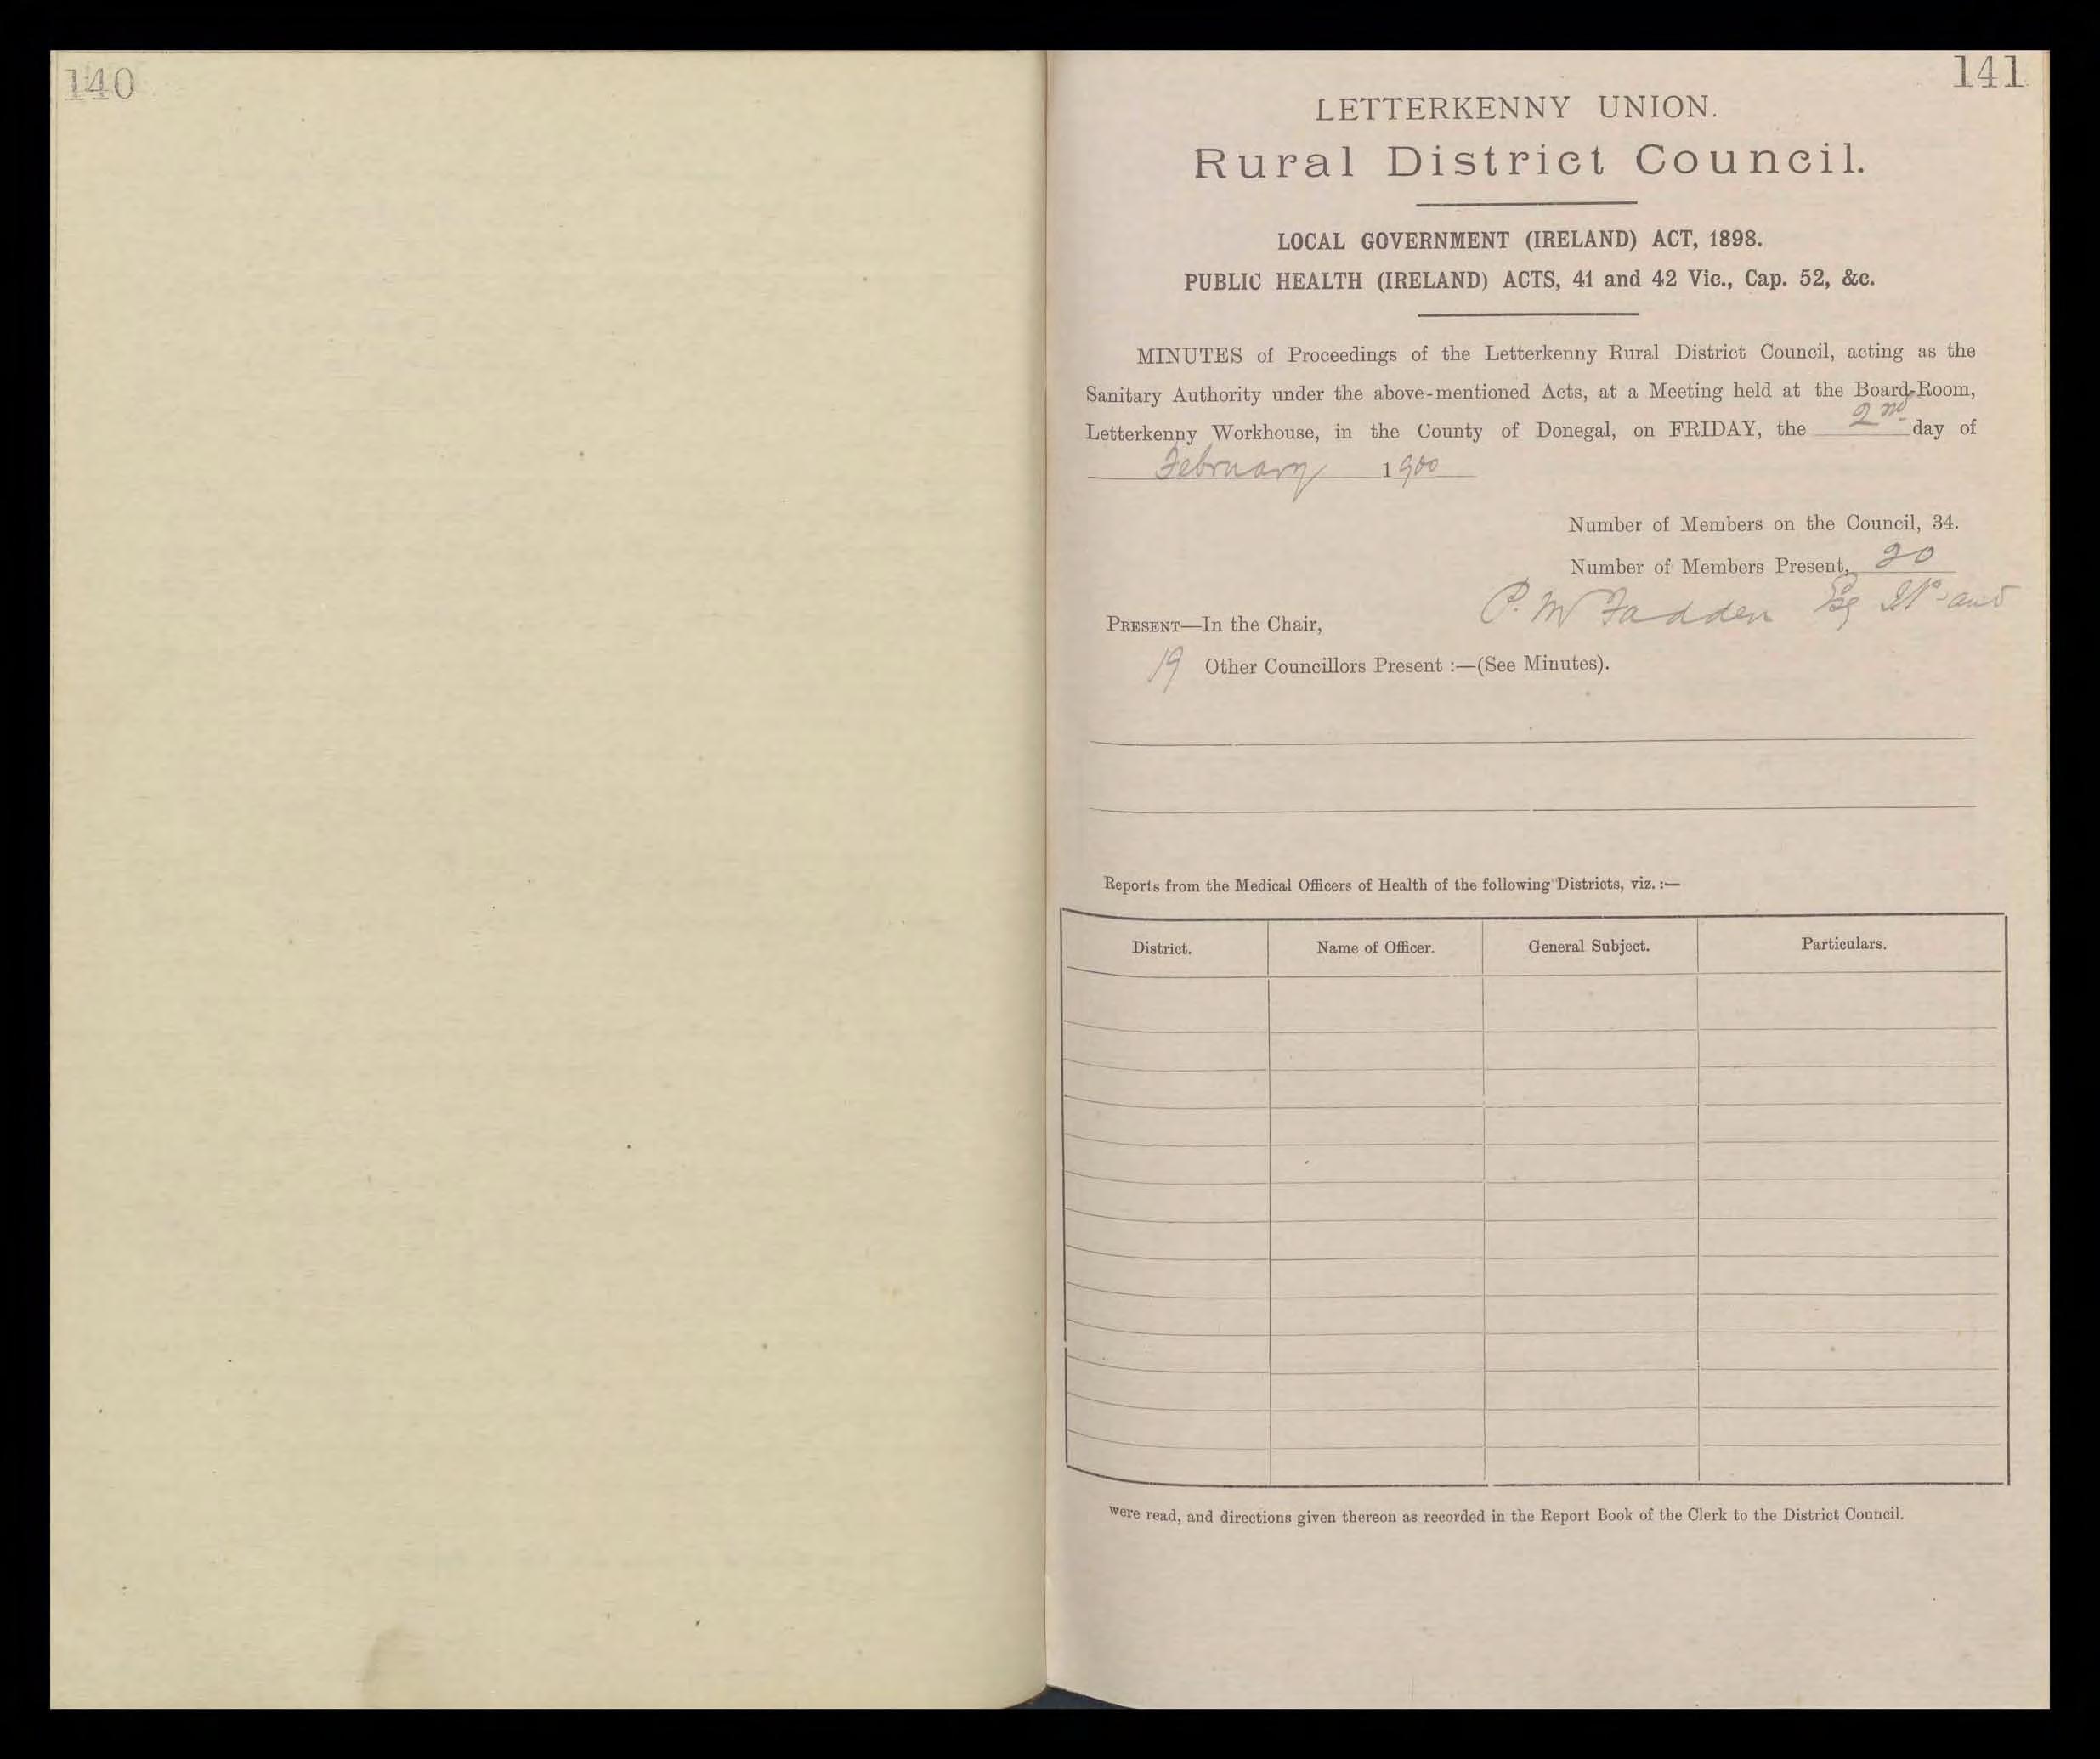 140
141
LETTERKENNY UNION.
Rural District Council.
LOCAL GOVERNMENT (IRELAND) ACT, 1898.
PUBLIC HEALTH (IRELAND) ACTS, 41 and 42 Vic., Cap. 52, &c.
MINUTES of Proceedings of the Letterkenny Rural District Council, acting as the
Sanitary Authority under the above-mentioned Acts, at a Meeting held at the Board-Room,
Letterkenny Workhouse, in the County of Donegal, on FRIDAY, the 2nd day of
February 1900
Number of Members on the Council, 34.
Number of Members Present, 20
PRESENT—In the Chair, P. McFadden Esq JP and
19 Other Councillors Present :—(See Minutes).
Reports from the Medical Officers of Health of the following Districts, viz. :—
District. Name of Officer. General Subject. Particulars.
were read, and directions given thereon as recorded in the Report Book of the Clerk to the District Council.